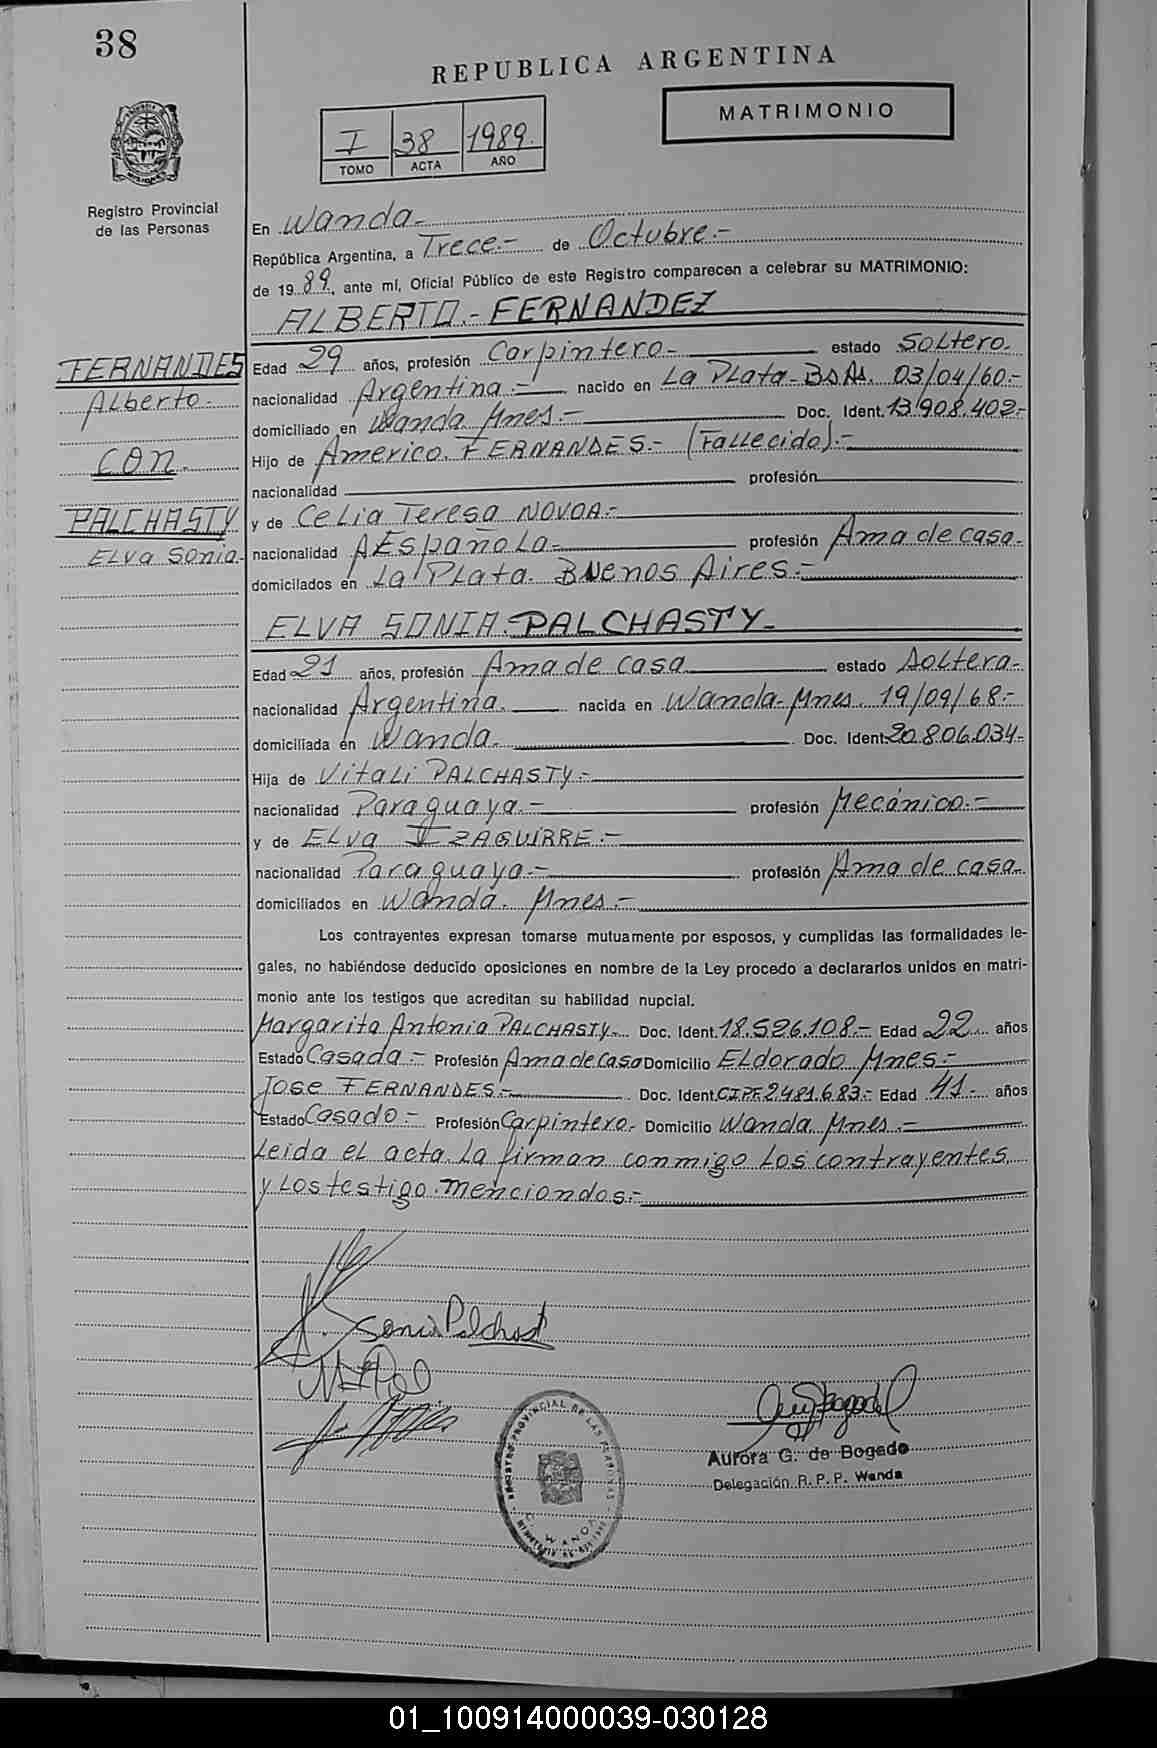 38
REPUBLICA ARGENTINA
MATRIMONIO
I 38 1989.
TOMO ACTA AÑO
Registro Provincial
de las Personas
En Wanda.-
República Argentina, a Trece.- de Octubre.-
de 1989, ante mí, Oficial Público de este Registro comparecen a celebrar su MATRIMONIO:
ALBERTO.- FERNANDEZ
FERNANDES
Alberto.
CON.
PALCHASTY
ELVA SONIA.
Edad 29 años, profesión Carpintero.- estado Soltero.
nacionalidad Argentina.- nacido en La PLata- Bs As. 03/04/60.-
domiciliado en Wanda. Mnes.- Doc. Ident. 13.908.402.-
Hijo de Americo. FERNANDES.- (FaLLecido).-
nacionalidad profesión
y de CeLia Teresa NOVOA.-
nacionalidad AEspañoLa.- profesión Ama de casa.
domicilados en La PLata. Buenos Aires.-
ELVA SONIA. PALCHASTY.
Edad 21 años, profesión Ama de casa estado soLtera.
nacionalidad Argentina. nacida en Wanda- Mnes. 19/09/68.-
domiciliada en Wanda. Doc. Ident. 20.806.034.-
Hija de Vitali PALCHASTY.-
nacionalidad Paraguaya.- profesión Mecánico.-
y de ELVA IZAGUIRRE.-
nacionalidad Paraguaya.- profesión Ama de casa.
domiciliados en Wanda. Mnes.-
Los contrayentes expresan tomarse mutuamente por esposos, y cumplidas las formalidades le-
gales, no habiéndose deducido oposiciones en nombre de la Ley procedo a declararlos unidos en matri-
monio ante los testigos que acreditan su habilidad nupcial.
Margarita Antonia PALCHASTY. Doc. Ident. 18.526.108.- Edad 22 años
Estado Casada.- Profesión Ama de casa Domicilio ELdorado Mnes.-
Jose FERNANDES.- Doc. Ident. CIPF.2481.683.- Edad 41. años
Estado Casado.- Profesión Carpintero. Domicilio Wanda Mnes.-
Leida eL acta. La firman conmigo Los contrayentes
y Los testigo. menciondos.-
Sonia Palchast
Aurora G. de Bogado
Delegación R. P. P. Wanda
REGISTRO PROVINCIAL DE LAS PERSONAS
WANDA
01_100914000039-030128